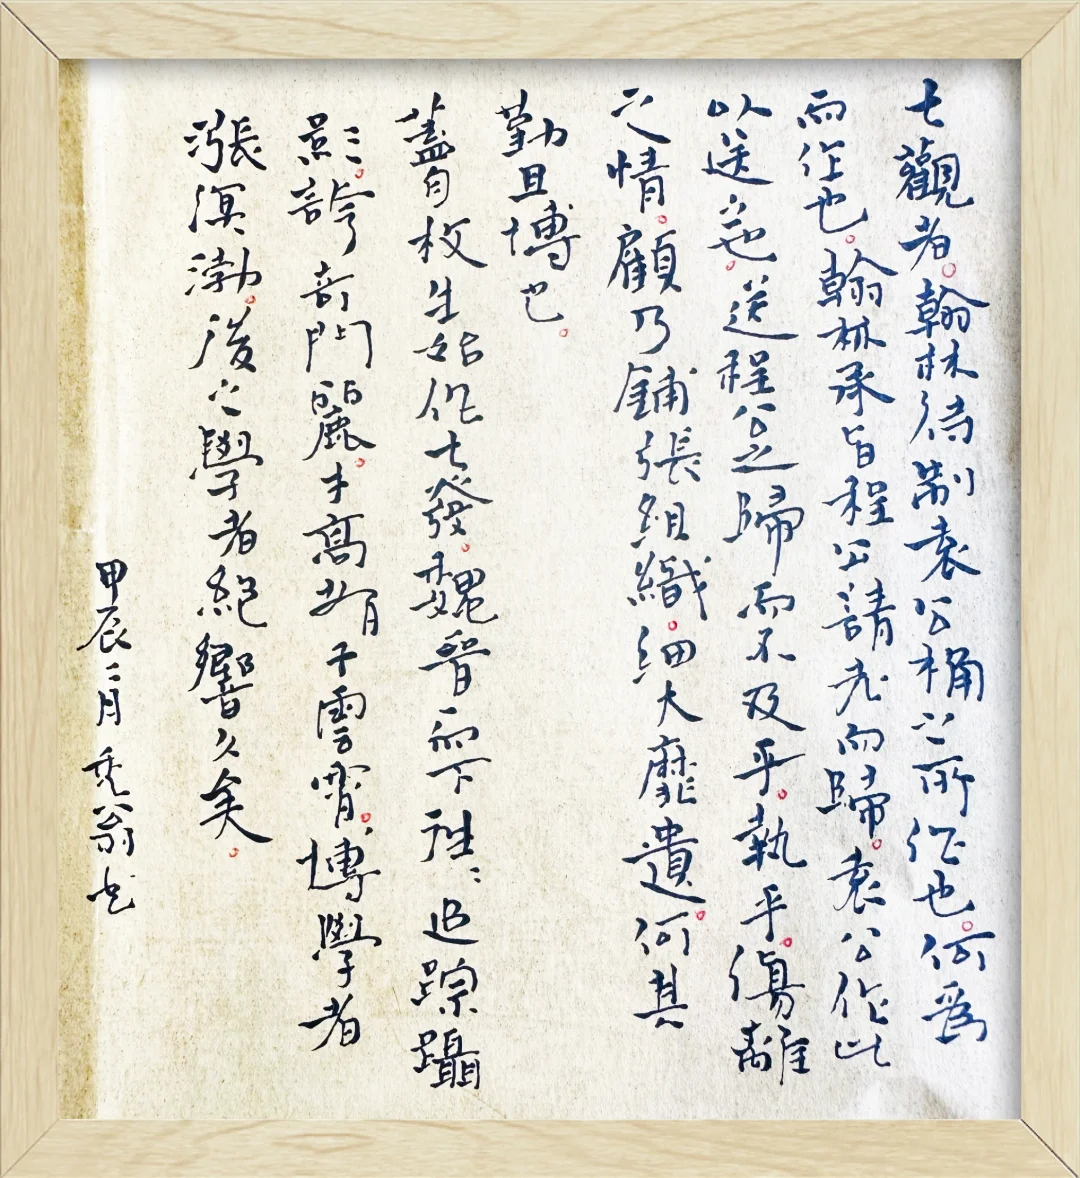 七觀者。翰林待制袁公桷之所作也。何爲
而作也。翰林承旨程公請老而歸。袁公作此
以送之也。送程公之歸而不及乎。執乎。傷離
之情。顧乃鋪張組織。細大靡遺。何其
勤且博也。
蓋自枚生始作七發。魏晉而下往往追踪躡
影。誇奇鬥麗。才高者凌雲霄。博學者
漲溟渤。後之學者絕響久矣。
甲辰二月 翁书